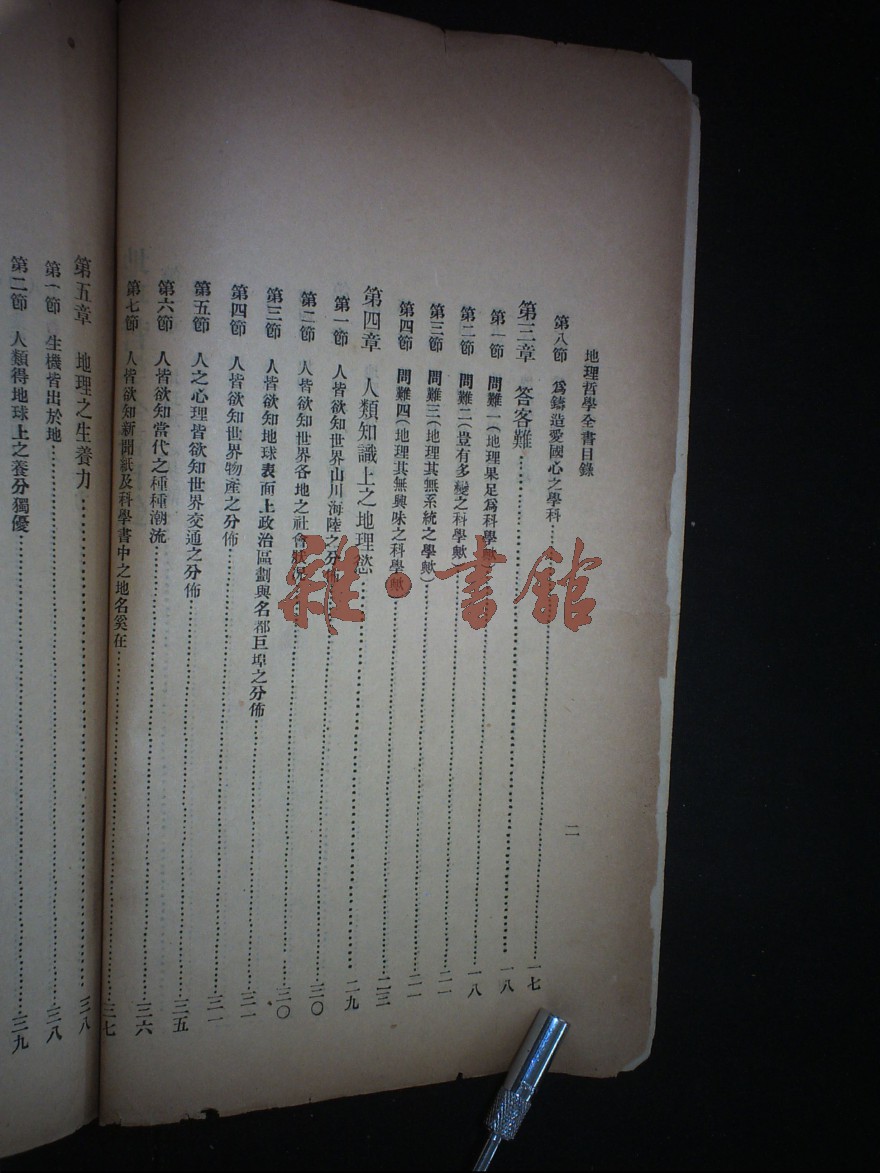 地理哲學全書目錄
二
第八節 爲鑄造愛國心之學科 一七
第三章 答客難 一八
第一節 問難一(地理果足爲科學歟) 一八
第二節 問難二(豈有多變之科學歟) 二一
第三節 問難三(地理其無系統之學歟) 二一
第四節 問難四(地理其無興味之科學歟) 二三
第四章 人類知識上之地理慾 二九
第一節 人皆欲知世界山川海陸之分佈 三〇
第二節 人皆欲知世界各地之社會狀况 三〇
第三節 人皆欲知地球表面上政治區劃與名都巨埠之分佈 三一
第四節 人皆欲知世界物產之分佈 三一
第五節 人之心理皆欲知世界交通之分佈 三五
第六節 人皆欲知當代之種種潮流 三六
第七節 人皆欲知新聞紙及科學書中之地名奚在 三七
第五章 地理之生養力 三八
第一節 生機皆出於地 三八
第二節 人類得地球上之養分獨優 三九
雜·書館